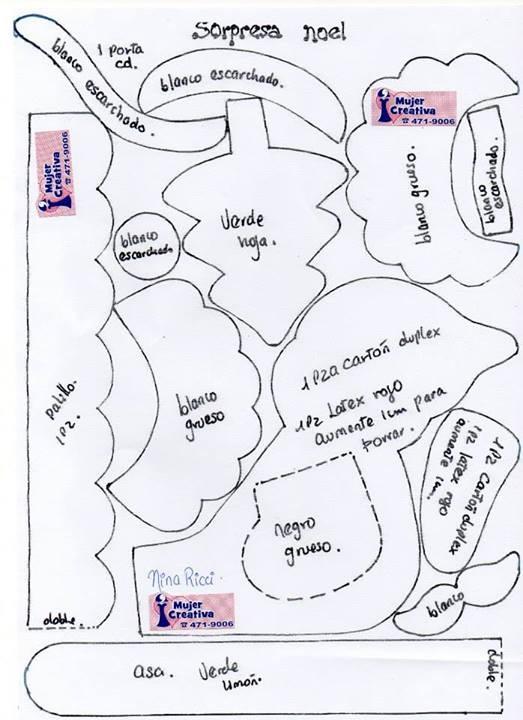 Sorpresa noel
1 porta
cd.
blanco escarchado.
blanco escarchado.
Mujer
Creativa
☎ 471-9006
Mujer
Creativa
☎ 471-9006
blanco grueso.
blanco
escarchado.
verde
hoja.
blanco
escarchado
palillo.
1pz.
blanco
grueso
1 pza cartón duplex
1pz Latex rojo
aumente 1cm para
forrar.
1pz cartón duplex
1pz latex rojo
aumente 1cm.
negro
grueso.
Nina Ricci.
Mujer
Creativa
☎ 471-9006
blanco
doble.
asa. verde
limón.
doble.